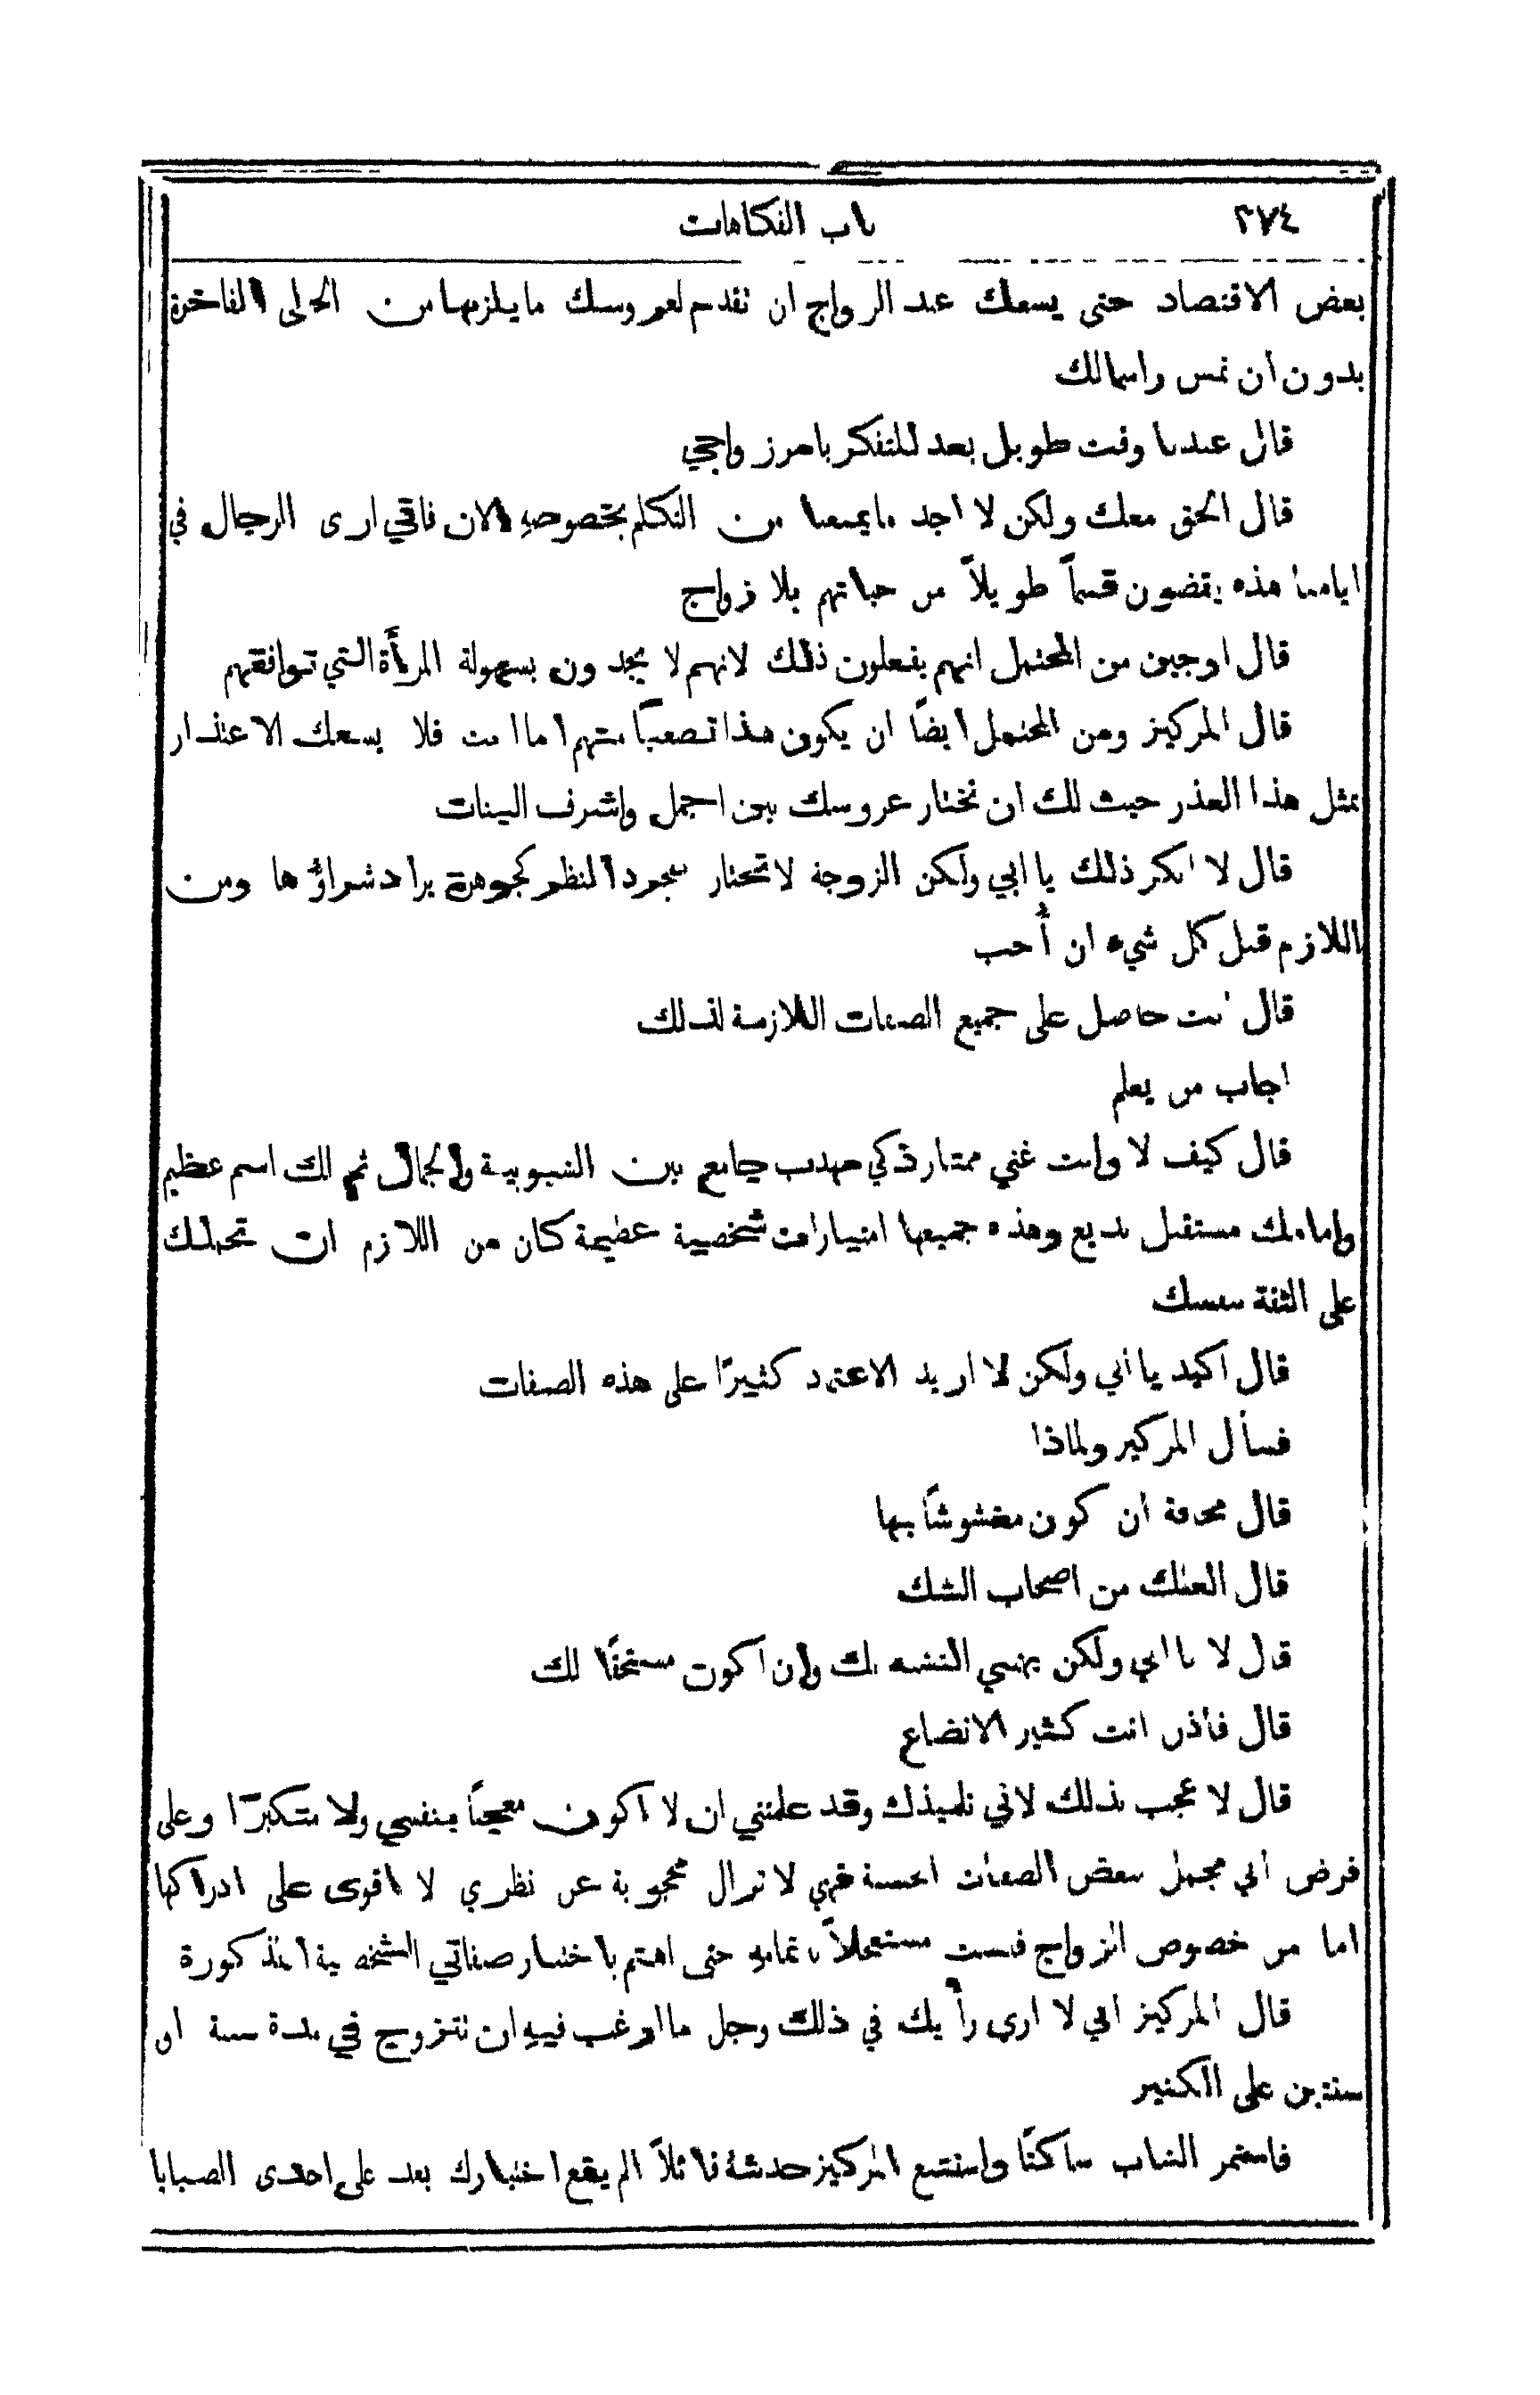 ٣٧٤ باب الفكاهات
بعض الاقتصاد حتى يسعك عند الزواج ان تقدم لعروسك ما يلزمها من الحلى الفاخرة
بدون ان تمس راسمالك
قال عندنا وقت طويل بعد للتفكر بامر زواجي
قال الحق معك ولكن لا اجد ما يمنعنا من التكلم بخصوصهِ الان فاني ارى الرجال في
ايامنا هذه يقضون قسماً طويلاً من حياتهم بلا زواج
قال اوجين من المحتمل انهم يفعلون ذلك لانهم لا يجدون بسهولة المرأة التي توافقهم
قال المركيز ومن المحتمل ايضًا ان يكون هذا تصعبًا منهم اما انت فلا يسعك الاعتذار
بمثل هذا العذر حيث لك ان تختار عروسك بين اجمل واشرف البنات
قال لا انكر ذلك يا ابي ولكن الزوجة لا تختار بمجرد النظر كجوهرة يراد شراؤها ومن
اللازم قبل كل شيء ان أُحب
قال انت حاصل على جميع الصفات اللازمة لذلك
اجاب من يعلم
قال كيف لا وانت غني ممتاز ذكي مهذب جامع بين الشبوبية والجمال ثم لك اسم عظيم
وامامك مستقبل بديع وهذه جميعها امتيازات شخصية عظيمة كان من اللازم ان تحملك
على الثقة بنفسك
قال اكيد يا ابي ولكن لا اريد الاعتمد كثيرًا على هذه الصفات
فسأل المركيز ولماذا
قال مخافة ان كون مغشوشًا بها
قال العلك من اصحاب الشك
قال لا يا ابي ولكن يهمني التشبه بك وان اكون مستحقًا لك
قال فاذن انت كثير الاتضاع
قال لا عجب بذلك لاني تلميذك وقد علمتني ان لا اكون معجبًا بنفسي ولا متكبرًا وعلى
فرض اني مجمل ببعض الصفات الحسنة فهي لا تزال محجوبة عن نظري لا اقوى على ادراكها
اما من خصوص الزواج فلست مستعجلاً باتمامهِ حتى اهتم باختبار صفاتي الشخصية المذكورة
قال المركيز اني لا ارى رأيك في ذلك وجل ما ارغب فيهِ ان تتزوج في مدة سنة او
سنتين على الكثير
فاستمر الشاب ساكتًا واستتبع المركيز حديثهُ قائلاً الم يقع اختيارك بعد على احدى الصبايا